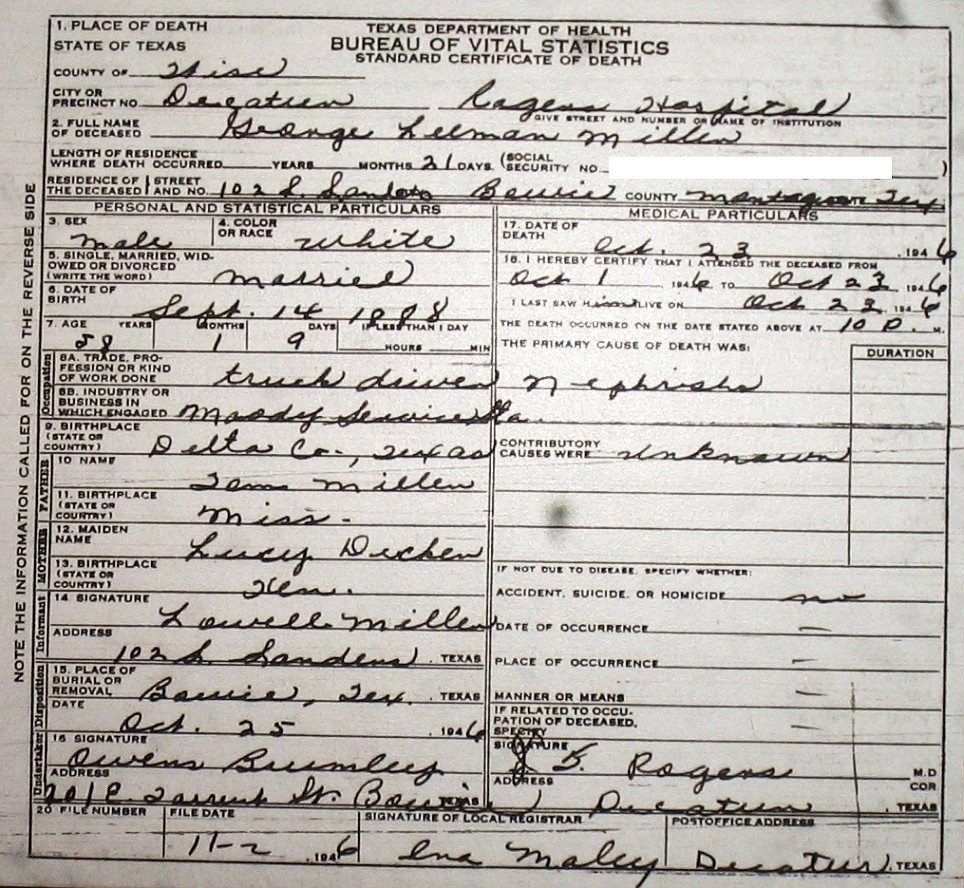 1. PLACE OF DEATH
STATE OF TEXAS
TEXAS DEPARTMENT OF HEALTH
BUREAU OF VITAL STATISTICS
STANDARD CERTIFICATE OF DEATH
COUNTY OF Wise
CITY OR PRECINCT NO. Decatur Rogers Hospital
GIVE STREET AND NUMBER OR NAME OF INSTITUTION
2. FULL NAME OF DECEASED George Leeman Miller
LENGTH OF RESIDENCE WHERE DEATH OCCURRED YEARS MONTHS 21 DAYS. (SOCIAL SECURITY NO. )
RESIDENCE OF THE DECEASED STREET AND NO. 102 S. Sanders Bowie COUNTY Montague Tex
PERSONAL AND STATISTICAL PARTICULARS
3. SEX male
4. COLOR OR RACE white
5. SINGLE, MARRIED, WIDOWED OR DIVORCED (WRITE THE WORD) married
6. DATE OF BIRTH Sept. 14 1888
7. AGE YEARS MONTHS DAYS IF LESS THAN 1 DAY
58 1 9 HOURS MIN
Occupation
8A. TRADE, PROFESSION OR KIND OF WORK DONE truck driver
8B. INDUSTRY OR BUSINESS IN WHICH ENGAGED Moody Service Sta.
9. BIRTHPLACE (STATE OR COUNTRY) Delta Co., Texas
FATHER
10 NAME Tom Miller
11. BIRTHPLACE (STATE OR COUNTRY) Miss.
MOTHER
12. MAIDEN NAME Lucy
13. BIRTHPLACE (STATE OR COUNTRY)
Informant
14 SIGNATURE Lowell Miller
ADDRESS 102 S. Sanders. TEXAS
Disposition
15. PLACE OF BURIAL OR REMOVAL Bowie, Tex. TEXAS
DATE Oct. 25 1946
Undertaker
16 SIGNATURE Owens Brumley
ADDRESS 201 E. Tarrant St. Bowie TEXAS
MEDICAL PARTICULARS
17. DATE OF DEATH Oct. 23 1946
18. I HEREBY CERTIFY THAT I ATTENDED THE DECEASED FROM
Oct 1 1946 TO Oct 23 1946
I LAST SAW HIM ALIVE ON Oct 23 1946
THE DEATH OCCURRED ON THE DATE STATED ABOVE AT 10 P. M.
THE PRIMARY CAUSE OF DEATH WAS: DURATION
Nephrosis
CONTRIBUTORY CAUSES WERE Unknown
IF NOT DUE TO DISEASE, SPECIFY WHETHER:
ACCIDENT, SUICIDE, OR HOMICIDE no
DATE OF OCCURRENCE —
PLACE OF OCCURRENCE —
MANNER OR MEANS —
IF RELATED TO OCCUPATION OF DECEASED, SPECIFY —
SIGNATURE Rogers M.D
COR.
ADDRESS Decatur, TEXAS
20 FILE NUMBER
FILE DATE 11-2, 1946
SIGNATURE OF LOCAL REGISTRAR Ina Maley
POSTOFFICE ADDRESS Decatur, TEXAS
NOTE THE INFORMATION CALLED FOR ON THE REVERSE SIDE